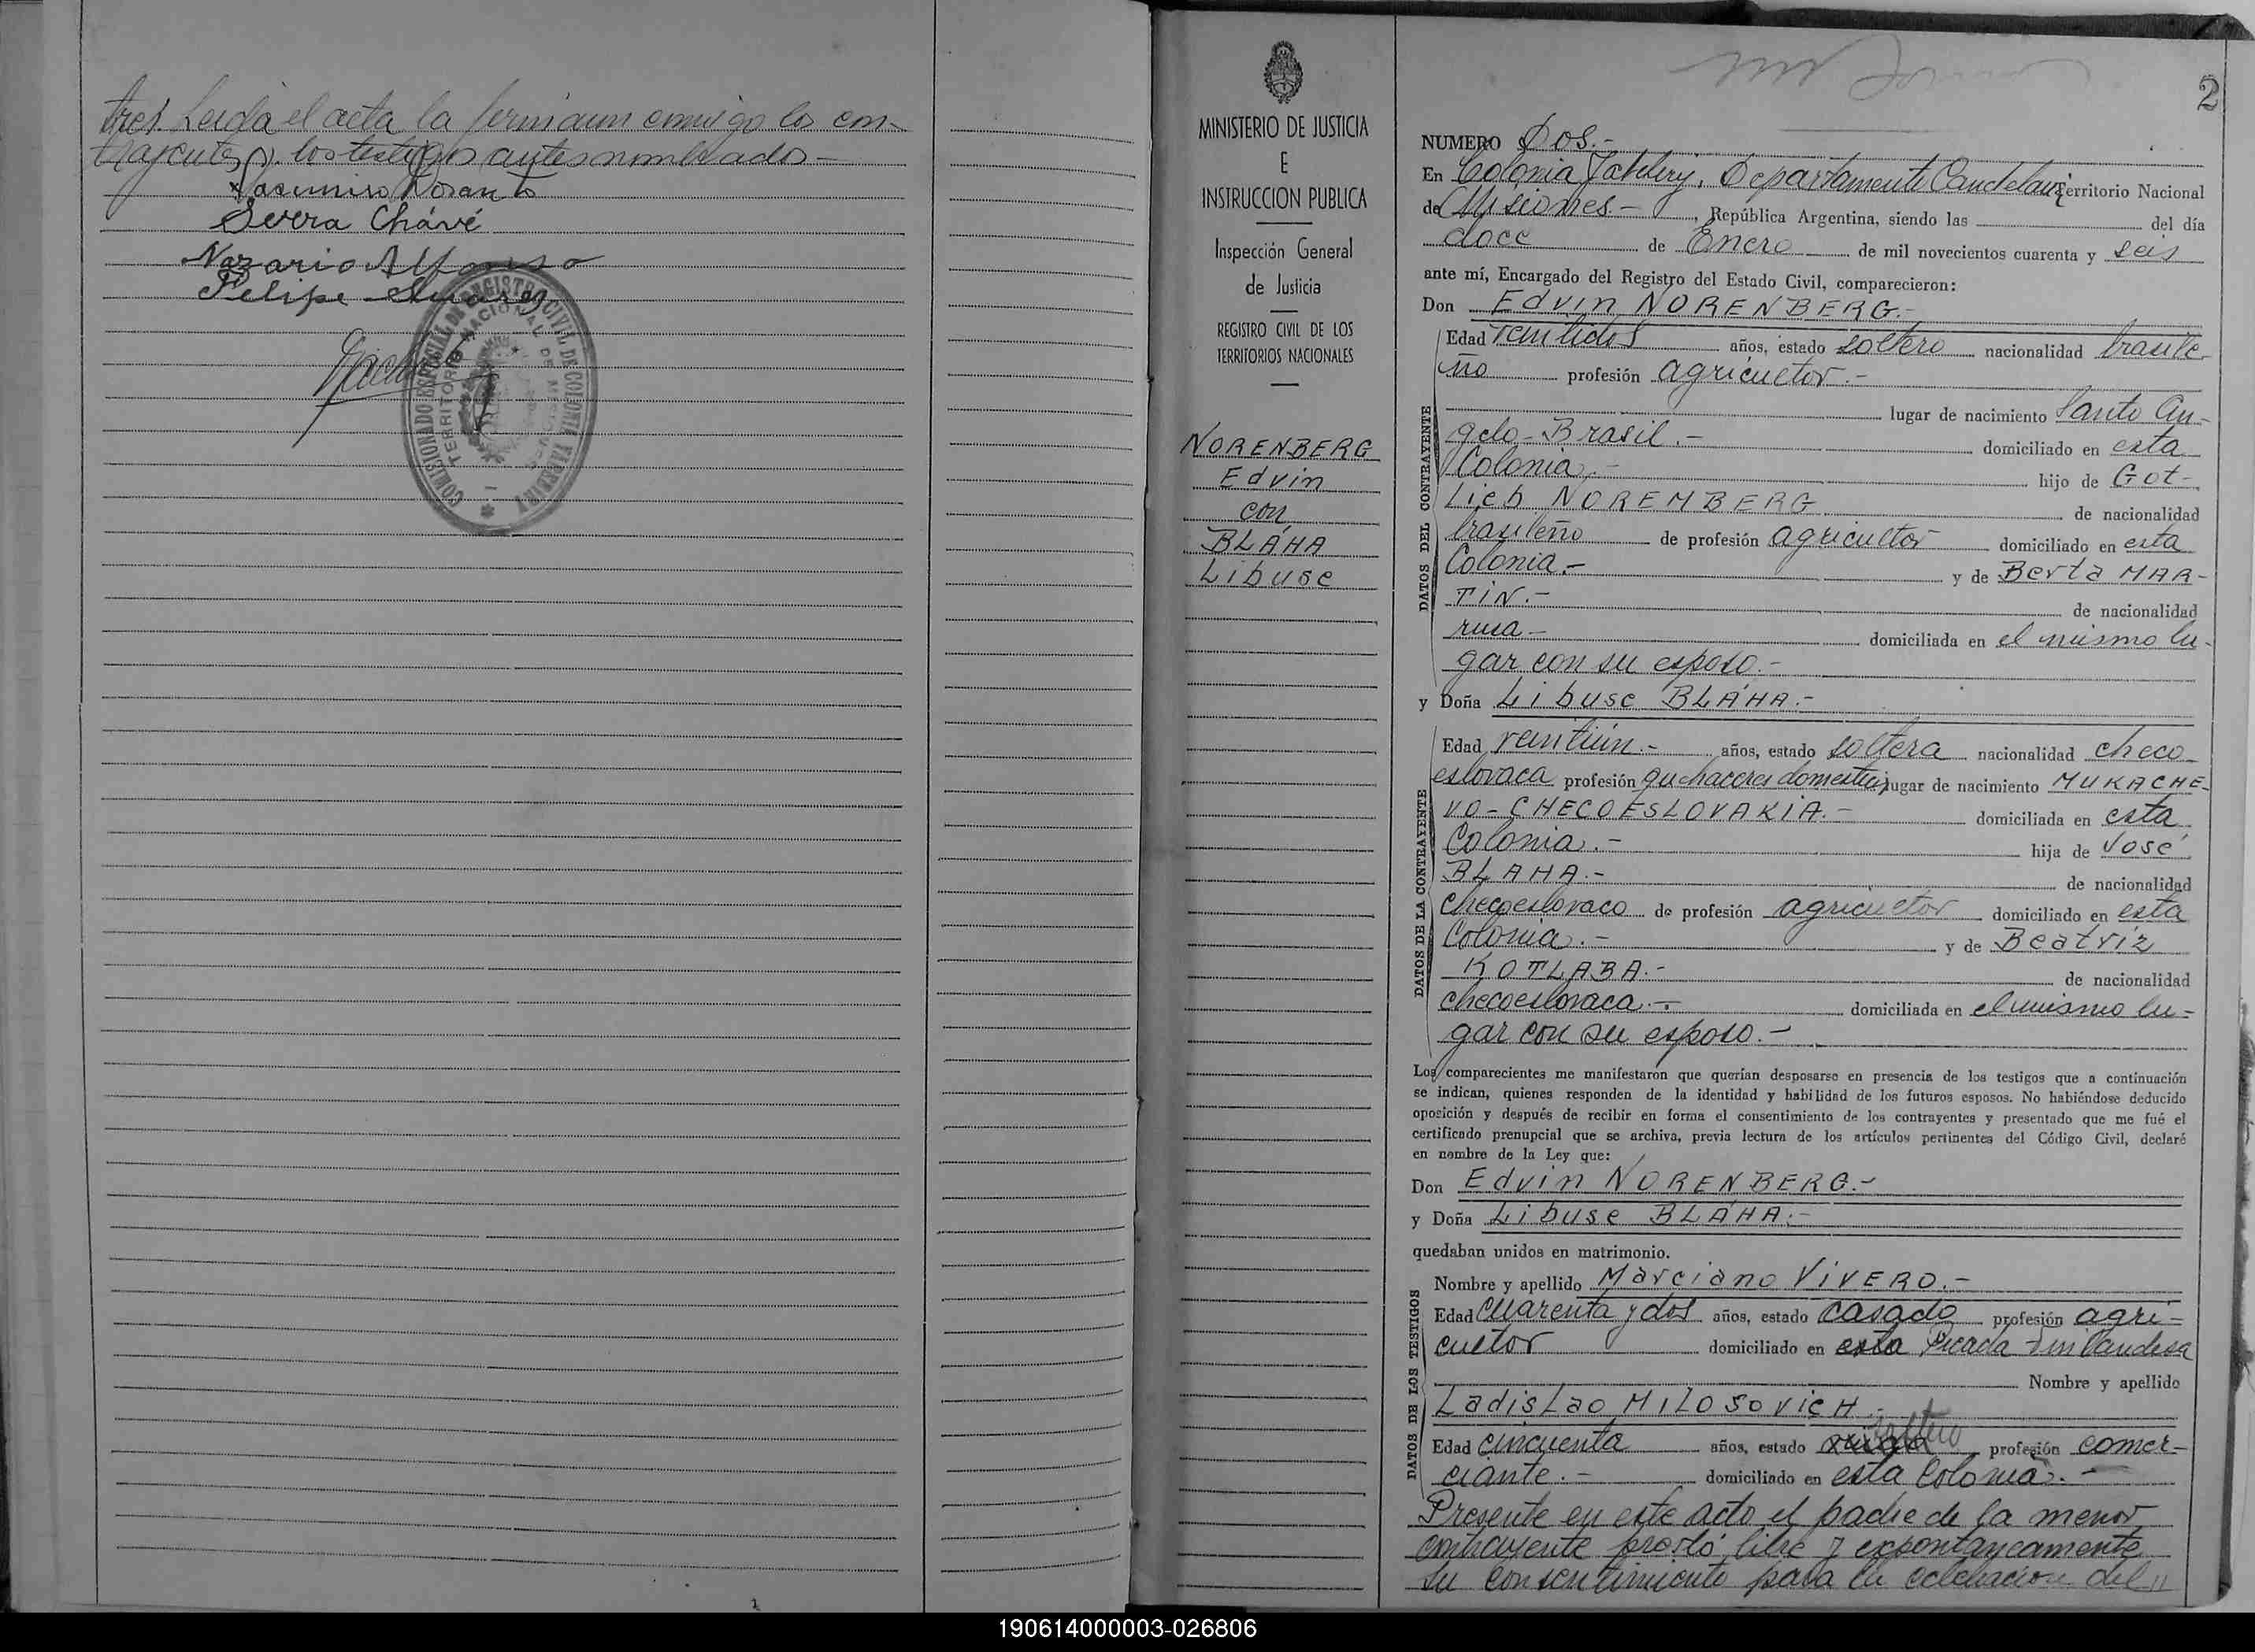 tres. Leida el acta la firman conmigo los con-
trayentes y los testigos antes nombrados-
Norante
Severa Chávé
Nazario Alfonso
Felipe
COMISIONADO ESPECIAL DE REGISTRO CIVIL DE COLONIA YABEBIRY
TERRITORIO NACIONAL DE MISIONES
MINISTERIO DE JUSTICIA
E
INSTRUCCION PUBLICA
Inspección General
de Justicia
REGISTRO CIVIL DE LOS
TERRITORIOS NACIONALES
NORENBERG
Edvin
con
BLÁHA
Libuse
2
NUMERO Dos.-
En Colonia Departamento Candelaria Territorio Nacional
de Misiones.- , República Argentina, siendo las del día
doce de Enero de mil novecientos cuarenta y seis
ante mí, Encargado del Registro del Estado Civil, comparecieron:
Don Edvin NORENBERG.-
DATOS DEL CONTRAYENTE
Edad veintidos años, estado soltero nacionalidad brasile-
ño profesión agricultor.-
lugar de nacimiento Santo An-
gelo-Brasil.- domiciliado en esta
Colonia.- hijo de Got-
Lieb NOREMBERG de nacionalidad
brasileño de profesión agricultor domiciliado en esta
Colonia.- y de Berta MAR-
TIN.- de nacionalidad
rusa- domiciliada en el mismo lu-
gar con su esposo.-
y Doña Libuse BLÁHA.-
DATOS DE LA CONTRAYENTE
Edad veintiún.- años, estado soltera nacionalidad checo-
eslovaca profesión quehaceres domesticos lugar de nacimiento MUKACHE-
VO-CHECOESLOVAKIA.- domiciliada en esta
Colonia.- hija de José
BLAHA.- de nacionalidad
checoeslovaco de profesión agricultor domiciliado en esta
Colonia.- y de Beatriz
KOTLABA.- de nacionalidad
checoeslovaca.- domiciliada en el mismo lu-
gar con su esposo.-
Los comparecientes me manifestaron que querían desposarse en presencia de los testigos que a continuación
se indican, quienes responden de la identidad y habilidad de los futuros esposos. No habiéndose deducido
oposición y después de recibir en forma el consentimiento de los contrayentes y presentado que me fué el
certificado prenupcial que se archiva, previa lectura de los artículos pertinentes del Código Civil, declaré
en nombre de la Ley que:
Don Edvin NORENBERG.-
y Doña Libuse BLÁHA.-
quedaban unidos en matrimonio.
DATOS DE LOS TESTIGOS
Nombre y apellido Marciano VIVERO.-
Edad cuarenta y dos años, estado casado profesión agri-
cultor domiciliado en esta Picada Finlandesa
Nombre y apellido
Ladislao MILOSOVICH.-
Edad cincuenta años, estado soltero profesión comer-
ciante.- domiciliado en esta Colonia.-
Presente en este acto el padre de la menor
contrayente prestó libre y expontaneamente
su consentimiento para la celebracion del //
190614000003-026806